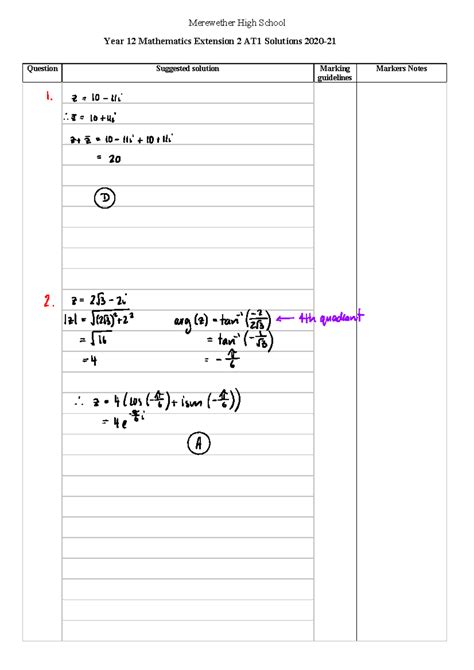 Merewether High School
Year 12 Mathematics Extension 2 AT1 Solutions 2020-21
Question Suggested solution Marking guidelines Markers Notes
1. z = 10 - 11i
∴ z̄ = 10 + 11i
z + z̄ = 10 - 11i + 10 + 11i
= 20
D
2. z = 2√3 - 2i
|z| = √((2√3)² + 2²) arg (z) = tan⁻¹(-2/2√3) ← 4th quadrant
= √16 = tan⁻¹(-1/√3)
= 4 = -π/6
∴ z = 4(cos(-π/6) + isin(-π/6))
= 4e^(-π/6 i)
A